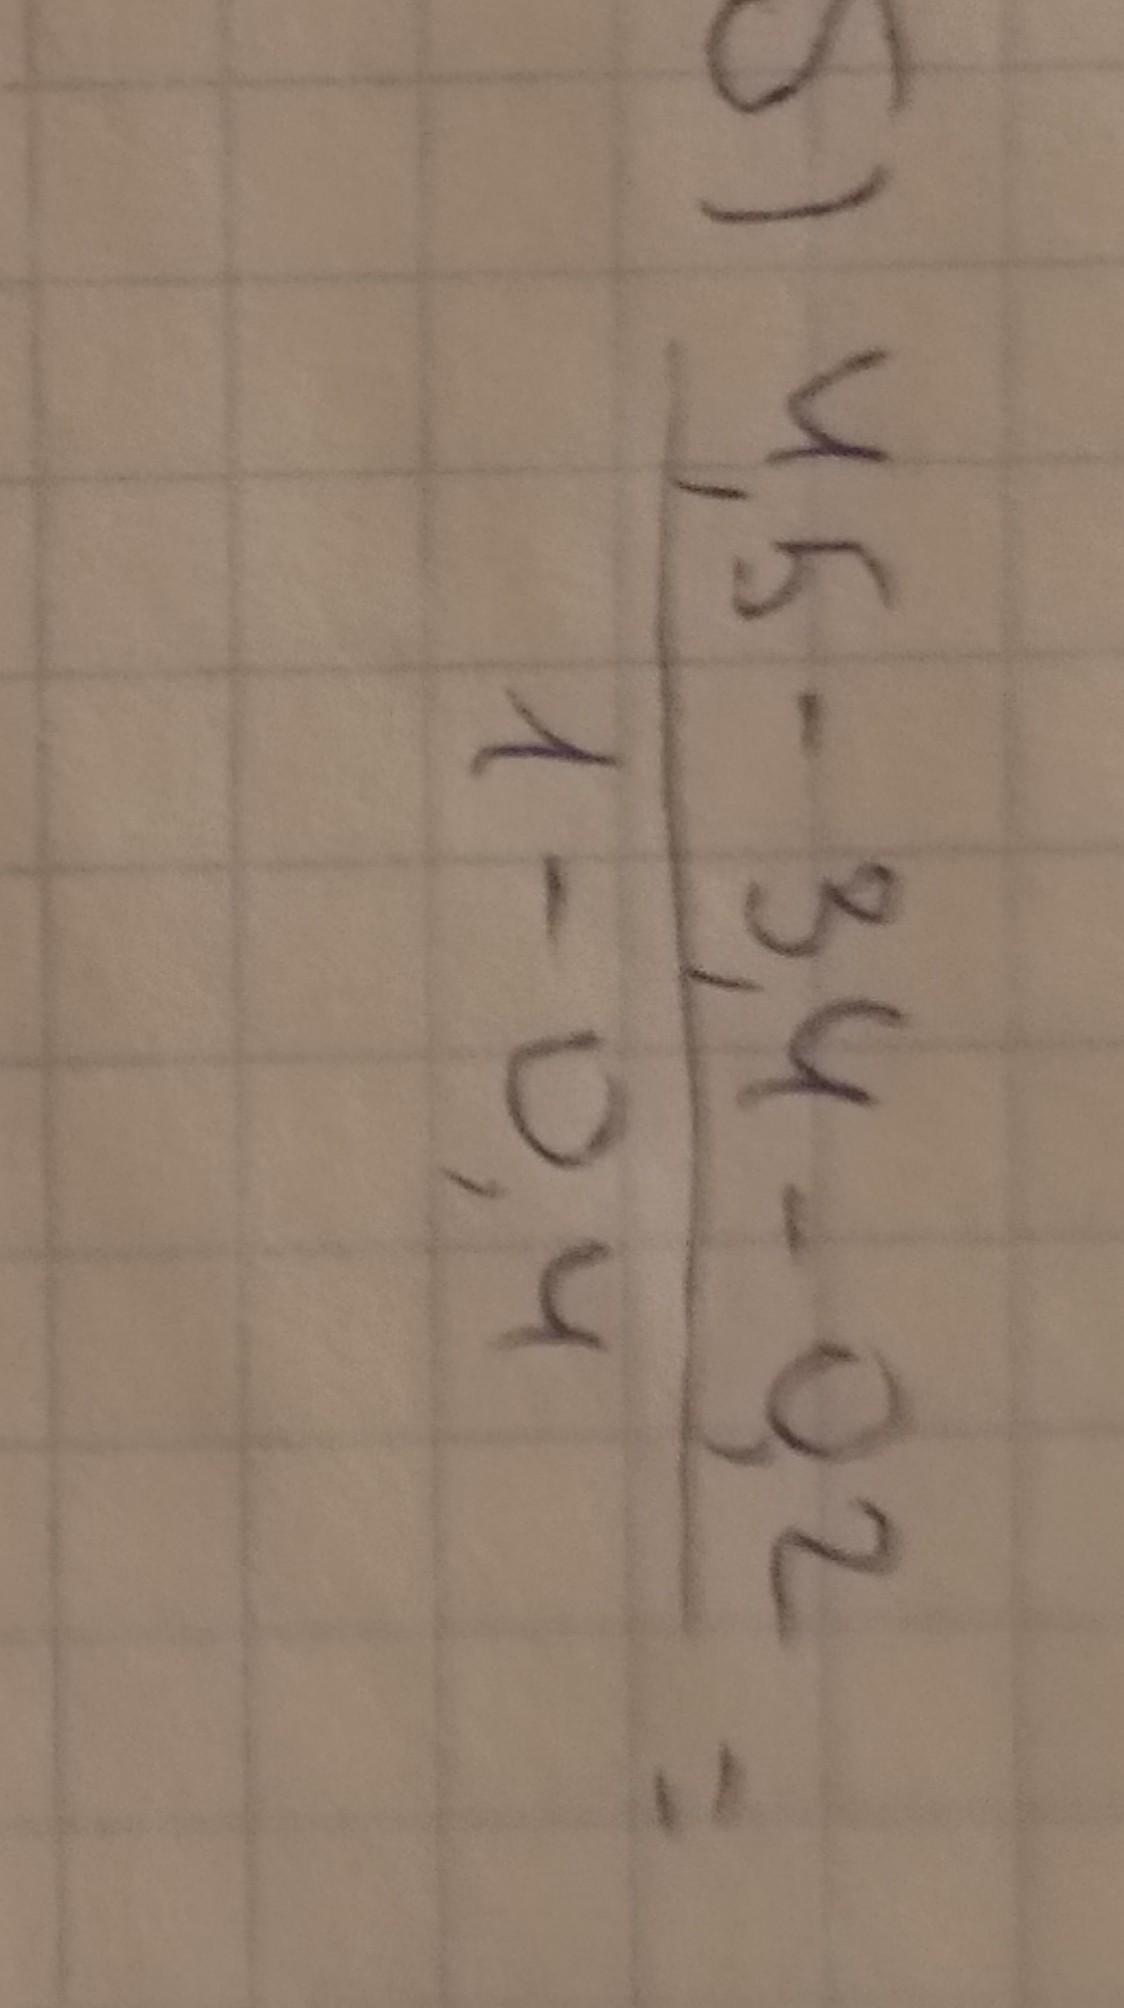 5) 4,5 - 3,4 - 0,2 =
1 - 0,4